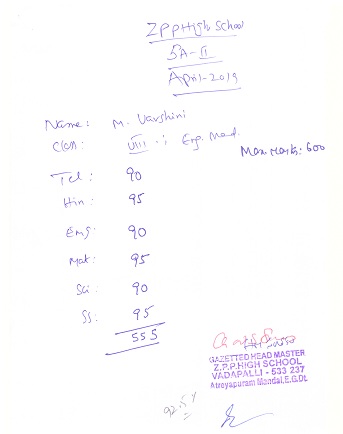 ZPPHigh School
SA-II
April-2019
Name: M. Varshini
Class: VIII : Eng. Med.
Max Marks: 600
Tel: 90
Hin: 95
Eng: 90
Mat: 95
Sci: 90
SS: 95
555
GAZETTED HEAD MASTER
Z.P.P.HIGH SCHOOL
VADAPALLI - 533 237
Atreyapuram Mandal, E.G.Dt.
92.5%